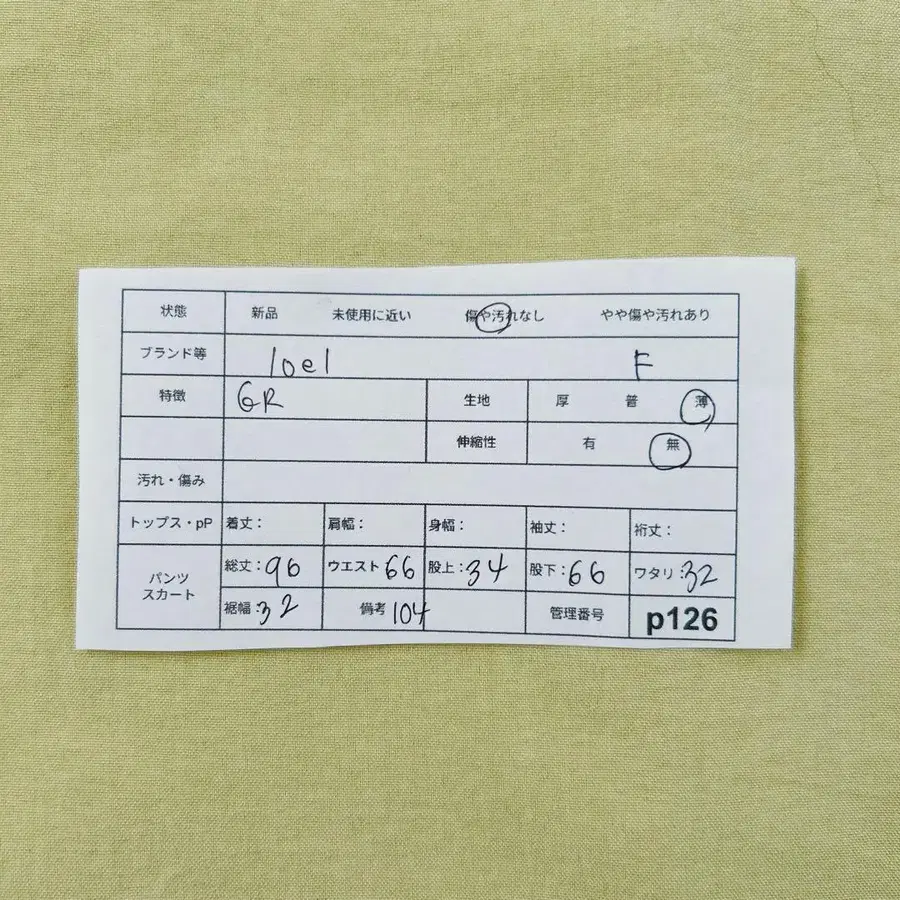 状態 新品 未使用に近い 傷や汚れなし やや傷や汚れあり
ブランド等 loel F
特徴 GR 生地 厚 普 薄
伸縮性 有 無
汚れ・傷み
トップス・pP 着丈: 肩幅: 身幅: 袖丈: 裄丈:
パンツ スカート 総丈:96 ウエスト 66 股上:34 股下:66 ワタリ:32
裾幅:32 備考 104 管理番号 p126